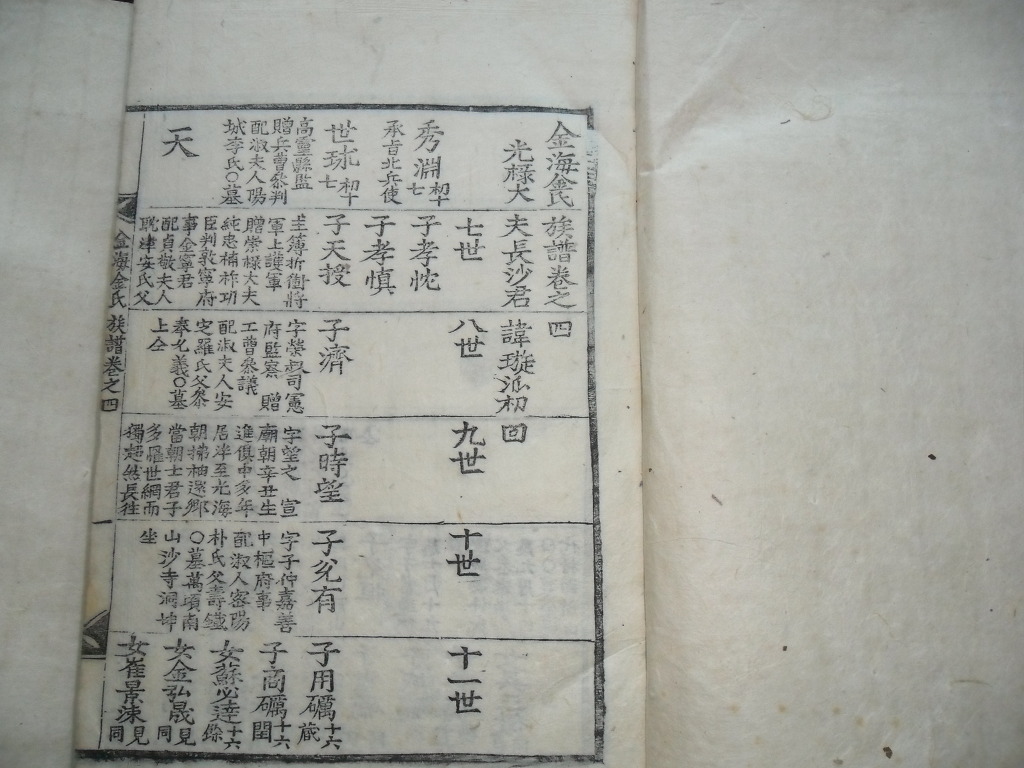 金海金氏族譜卷之四
光祿大夫長沙君諱璇派初回
七世
八世
九世
十世
十一世
秀淵初十七
承旨北兵使
子孝忱
子孝慎
世球初十七
高靈縣監
贈兵曹參判
配淑夫人陽
城李氏○墓
天
子天授
主簿折衝將
軍上護軍
贈崇祿大夫
純忠補祚功
臣判敦寧府
事金寧君
配貞敬夫人
耽津安氏父
子濟
字榮叔司憲
府監察 贈
工曹參議
配淑夫人安
定羅氏父參
奉允義○墓
上仝
子時望
字望之 宣
廟朝辛丑生
進俱中多年
居泮至光海
朝拂袖還鄉
當朝士君子
多罹世網而
獨超然長往
子兌有
字子仲嘉善
中樞府事
配淑人密陽
朴氏父壽鐵
○墓萬頃南
山沙寺洞坤
坐
子用礪十六
歲
子商礪十六
閏
女蘇必達十六
餘
女金弘晟見
同
女崔景涑見
同
金海金氏族譜卷之四